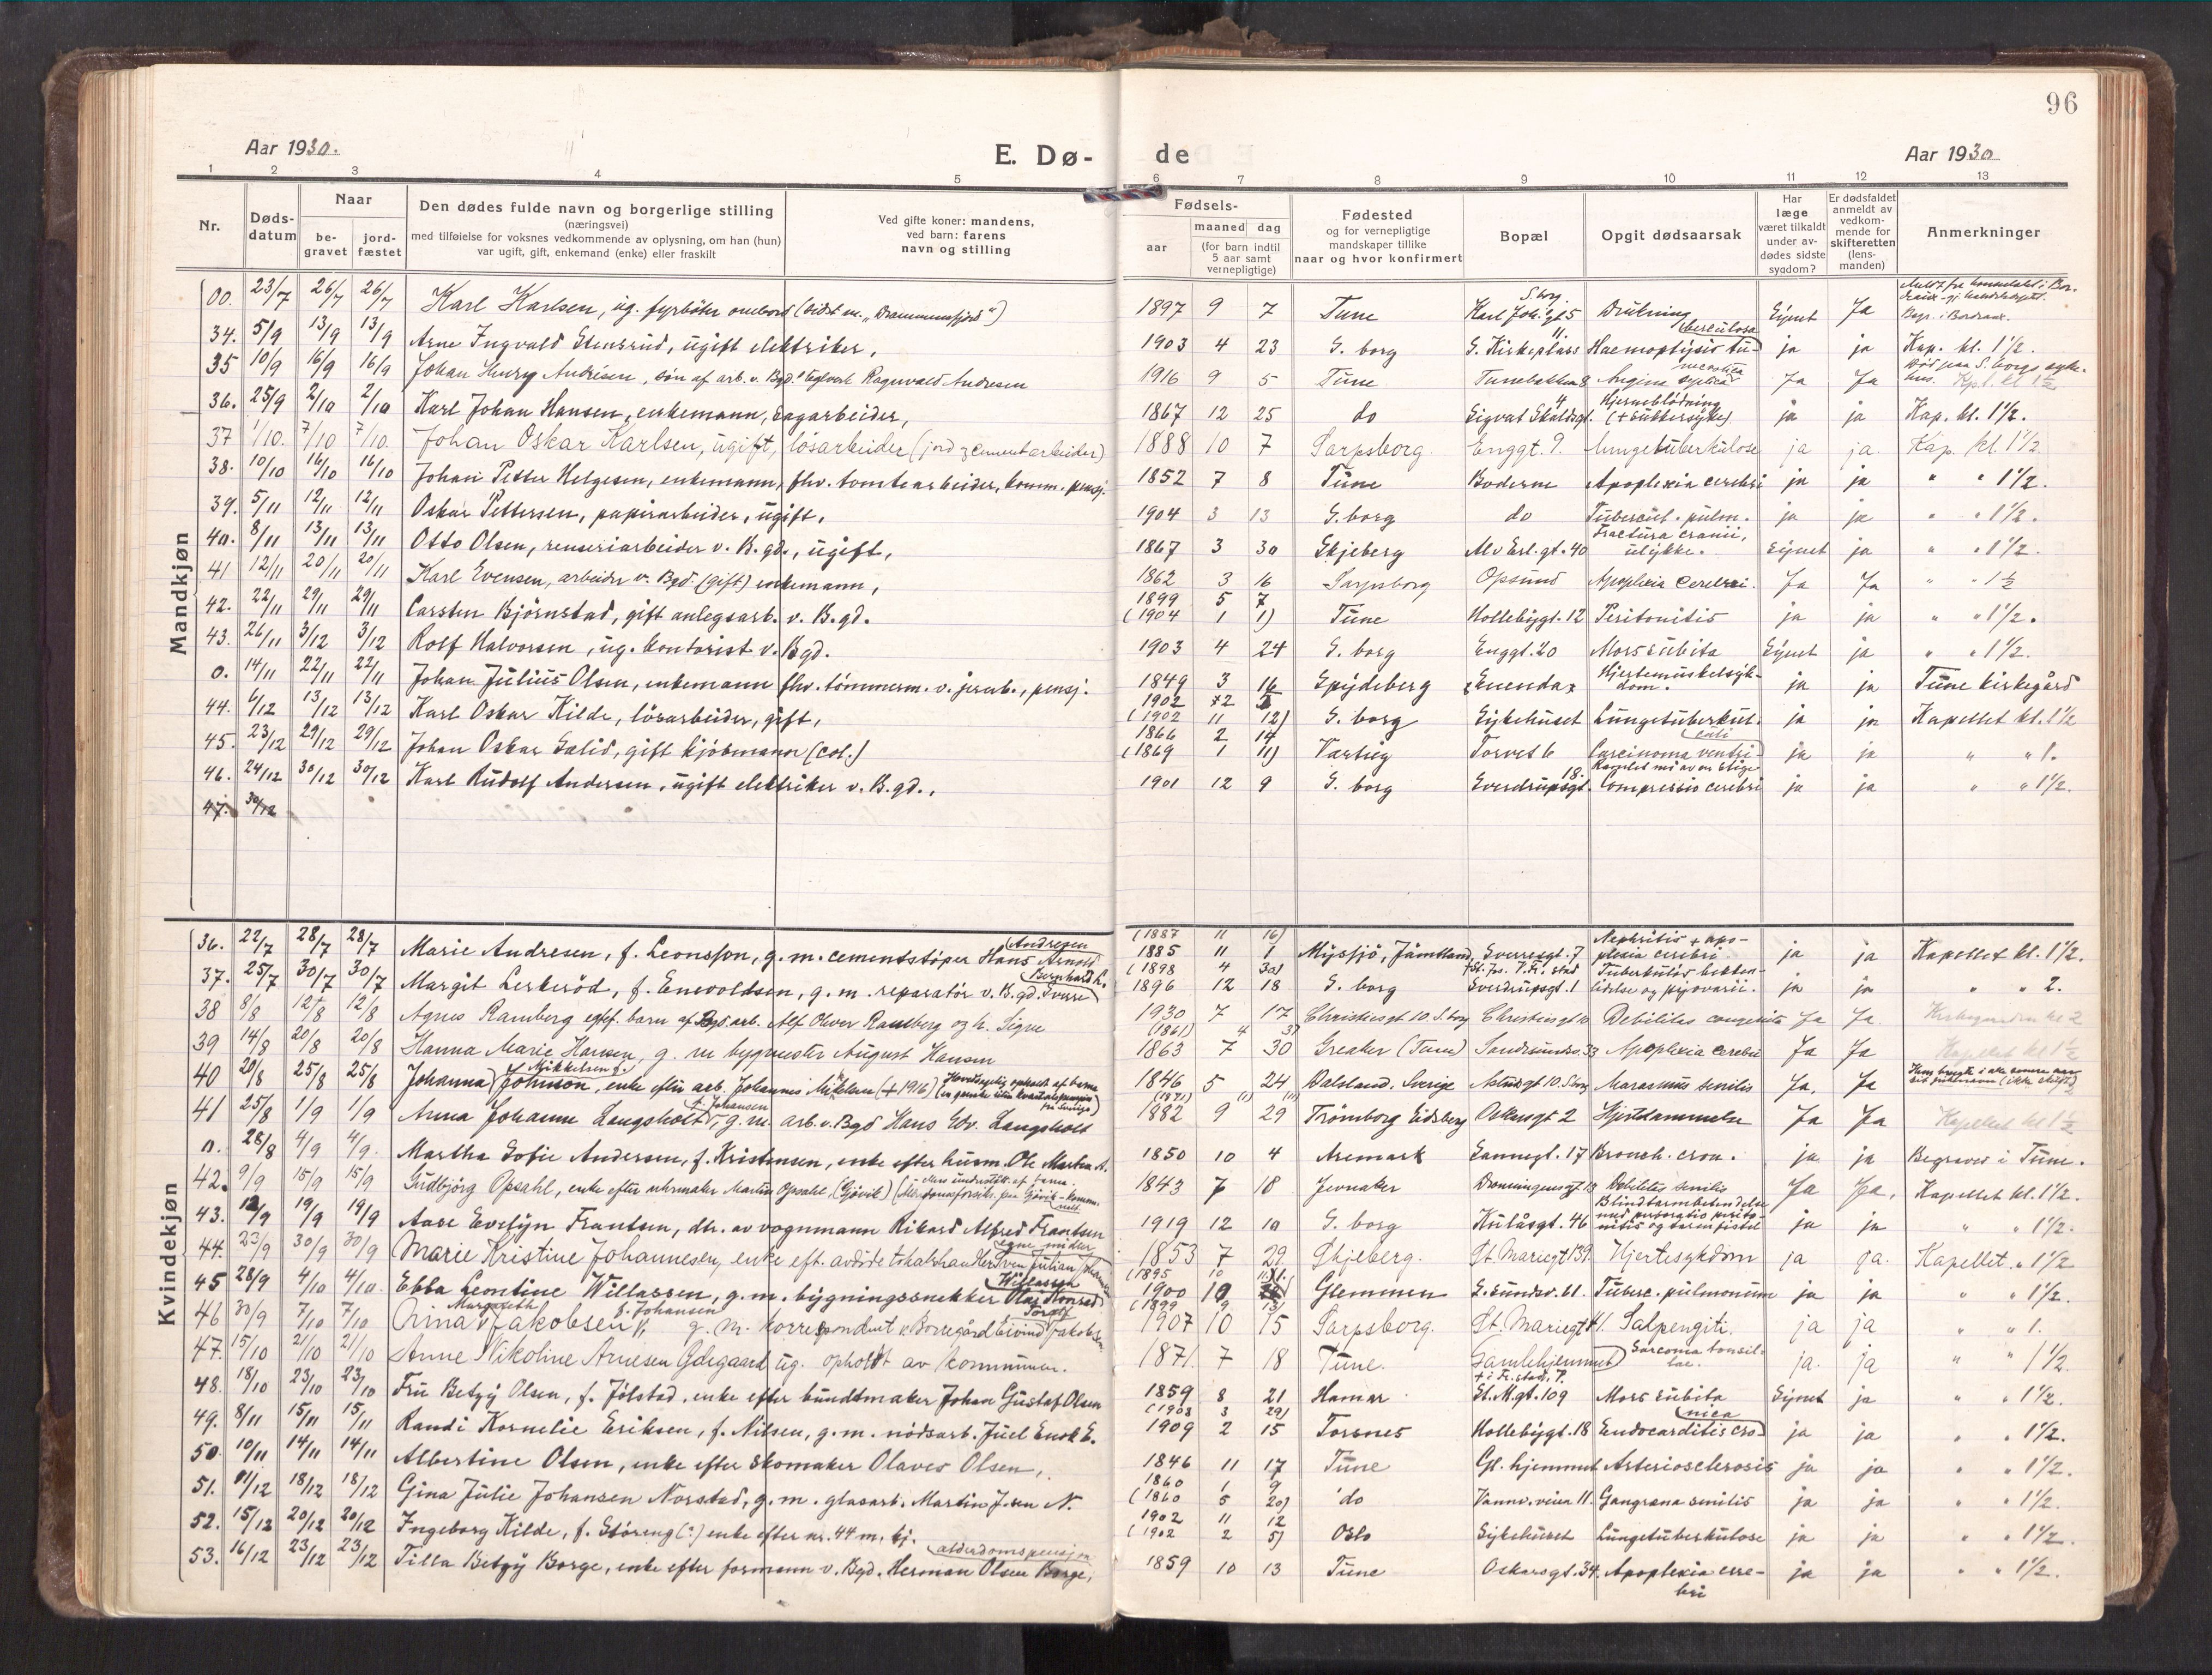 96
Aar 1930.
E. Dø- de
Aar 1930
1 2 3 4 5 6 7 8 9 10 11 12 13
Nr. Døds-datum Naar be-gravet jord-fæstet
Den dødes fulde navn og borgerlige stilling
(næringsvei)
med tilføielse for voksnes vedkommende av oplysning, om han (hun)
var ugift, gift, enkemand (enke) eller fraskilt
Ved gifte koner: mandens,
ved barn: farens
navn og stilling
Fødsels-
aar maaned dag
(for barn indtil
5 aar samt
vernepligtige)
Fødested
og for vernepligtige
mandskaper tillike
naar og hvor konfirmert
Bopæl
Opgit dødsaarsak
Har
læge
været tilkaldt
under av-
dødes sidste
sygdom?
Er dødsfaldet
anmeldt av
vedkom-
mende for
skifteretten
(lens-
manden)
Anmerkninger
Mandkjøn
00. 23/7 26/7 26/7 Karl Karlsen, ug. fyrbøter ombord "Drammensfjord") 1897 9 7 Tune S.borg Karl Joh. gt 5 Drukning Ja
34. 5/9 13/9 13/9 Arne Ingvald Stensrud, ugift elektriker, 1903 4 23 S. borg G. Kirkeplass 11 Haemoptysis tuberculosa ja ja Kap. kl. 1½.
35 10/9 16/9 16/9 Johan Henry Andresen, søn af arb. v. Bgd. Teglverk Ragnvald Andresen 1916 9 5 Tune Tunebakken 8 Angina Ja Ja Død paa S.borgs sykehus. Kpl. kl 1½
36. 25/9 2/10 2/10 Karl Johan Hansen, enkemann, sagarbeider, 1867 12 25 do Sigvat Skaldsgt. 4 Hjerneblødning (+ Sukkersyke) ja ja Kap. kl. 1½.
37 1/10. 7/10 7/10. Johan Oskar Karlsen, ugift, løsarbeider (jord & cementarbeider) 1888 10 7 Sarpsborg Enggt. 9. Lungetuberkulose ja ja. Kap. kl. 1½
38. 10/10 16/10 16/10 Johan Petter Helgesen, enkemann, fhv. tomtearbeider, komm. pensj. 1852 7 8 Tune Boderne Apoplexia cerebri ja ja " " 1½.
39. 5/11 12/11 12/11 Oskar Pettersen, papirarbeider, ugift, 1904 3 13 S.borg do Tubercul. pulm. ja ja " " 1½.
40. 8/11 13/11 13/11 Otto Olsen, renseriarbeider v. B. gd., ugift, 1867 3 30 Skjeberg Alv Erl. gt. 40 Fractura cranii, ulykke. Synet ja " " 1½.
41 12/11 20/11 20/11 Karl Evensen, arbeider v. Bgd. (gift) enkemann, 1862 3 16 Sarpsborg Opsund Apoplexia Cerebri. Ja Ja " " 1½
42. 22/11 29/11 29/11 Carsten Bjørnstad, gift anlegsarb. v. B. gd. 1899 5 7 (1904 1 1) Tune Hollebygt. 12 Peritonitis ja ja " " 1½.
43. 26/11 3/12 3/12 Rolf Halvorsen, ug. kontorist v. Bgd. 1903 4 24 S. borg Enggt. 20 Mors subita Synet ja " " 1½.
0. 14/11 22/11 22/11 Johan Julius Olsen, enkemann fhv. tømmerm. v. jernb., pensj. 1849 3 16 Spydeberg Hjertemuskelsykdom. ja ja Tune kirkegård
44. 6/12 13/12 13/12 Karl Oskar Kilde, løsarbeider, gift, 1902 (1902 11 12) S. borg Sykehuset Lungetuberkul. ja ja Kapellet kl. 1½
45. 23/12 29/12 29/12 Johan Oskar Solid, gift kjøbmann (col.) 1866 2 14 (1869 1 11) Varteig Torvet 6 Carcinoma ventriculi ja ja " " 1.
46. 24/12 30/12 30/12 Karl Rudolf Andersen, ugift elektriker v. B. gd., 1901 12 9 S. borg Sverdrupsgt. 18. Ramlet ned av en stige Compressio cerebri ja ja " " 1½.
47. 30/12
Kvindekjøn
36. 22/7 28/7 28/7 Marie Andresen, f. Leonsson, g. m. cementstøper Hans Arnold Andresen (1887 11 16) 1885 11 1 Myssjö, Jämtland Sverresgt. 7 Nephritis + apoplexia cerebri. ja ja Kapellet kl. 1½.
37. 25/7 30/7 30/7 Margit Lerkerød, f. Enevoldsen, g. m. reparatør v. B. gd. Sverre Bernhard L. (1898 4 30) 1896 12 18 S. borg + St. Jos. F.st. stad Sverdrupsgt. 1 Tuberkuløs bekkenlidelse og pyovarii. ja ja " " 2.
38 8/8 12/8 12/8 Agnes Ramberg egtef. barn af Bgd. arb. Alf Oliver Ramberg og h. Signe 1930 7 17 Christiesgt 10 S.borg Christiesgt 10 Debilitas congenita Ja Ja Kirkegaarden kl 2
39 14/8 20/8 20/8 Hanna Marie Hansen, g. m bygmester August Hansen (1861) 4 3) 1863 7 30 Greaker (Tune) Sandesundsv. 33 Apoplexia Cerebri Ja Ja Kapellet kl 1½
40 20/8 25/8 25/8 Johanna Mikkelsen f. Johnson, enke efter arb. Johannes Mikkelsen (+ 1916) 1846 5 24 Dalsland. Sverige Astridsgt 10. S.borg Marasmus senilis Ja. Ja
41 25/8 1/9 1/9 Anna Johanne Langsholt, f. Johansen g. m. arb. v. Bgd Hans Edv. Langsholt (1871) 1882 9 29 Trømborg Eidsberg Oskarsgt 2 Hjertelammelse Ja Ja Kapellet kl 1½
0. 28/8 4/9 4/9. Martha Sofie Andersen, f. Kristensen, enke efter husm. Ole Martin A. 1850 10 4 Aremark Sannegt. 17 Bronch. cron. ja ja Begraves i Tune.
42. 9/9 15/9 15/9 Gudbjørg Opsahl, enke efter uhrmaker Martin Opsahl, (Gjøvik) 1843 7 18 Jevnaker Dronningensgt 13 Debilitas senilis Ja Ja. Kapellet kl. 1½.
43. 12/9 19/9 19/9 Aase Evelyn Frantsen, dtr. av vognmann Rikard Alfred Frantsen 1919 12 10 S. borg Kulåsgt. 46 Blindtarmbetendelse med perforatio peritonitis og tarmfistel ja ja " " 1½.
44. 23/9 30/9 30/9 Marie Kristine Johannesen, enke eft. avdøde 1853 7 29 Skjeberg. St. Mariegt 139 Hjertesykdom ja ja. Kapellet " 1½
45 28/9 4/10 4/10. Ebba Leontine Willassen, g. m. bygningssnekker Olaf Konrad Willassen (1895 10 1900 10 Glemmen S.sundsv. 61. Tuberc. pulmonum ja ja " " 1½.
46 30/9 7/10 7/10 Anna Margareth Jakobsen, f. Johansen g. m. korrespondent v. Borregård Eivind Torolf Jakobsen (1899 9 13) 1907 10 15 Sarpsborg. St. Mariegt 41. Salpengiti. ja ja " " 1.
47. 15/10 21/10 21/10 Anne Nikoline Arnesen Ødegaard ug. opholdt av kommunen. 1871. 7 18 Tune. Gamlehjemmet Sarcoma tonsillae. ja. ja " " 1½.
48. 18/10 23/10 23/10 Fru Betzy Olsen, f. Jølstad, enke efter bundtmaker Johan Gustaf Olsen 1859 8 21 Hamar + i Fr.stad. P. St. M.gt. 109 Mors subita Synet ja " " 1½.
49. 8/11 15/11 15/11 Randi Kornelie Eriksen, f. Nilsen, g. m. nødsarb. Juel Enok E. (1908 3 29) 1909 2 15 Torsnes Hollebygt. 18 Endocarditis cronica ja ja " " 1½.
50. 10/11 14/11 14/11 Albertine Olsen, enke efter skomaker Olaves Olsen, 1846 11 17 Tune Gl. hjemmet Arteriosclerosis ja ja " " 1½.
51. 11/12 18/12 18/12 Gina Julie Johansen Norstad, g. m. glasarb. Martin J.sen N. 1860 1 9 (1860 5 20) do Vannv. veien 11. Gangræna senilis ja ja " " 1½.
52. 15/12 20/12 20/12 Ingeborg Kilde, f. Støreng (?) enke efter nr. 44 m. kj. 1902 11 12 (1902 2 5) Oslo Sykehuset Lungetuberkulose ja ja " " 1½.
53. 16/12 23/12 23/12 Tilla Betzy Borge, enke efter formann v. Bgd. Herman Olsen Borge, alderdomspensjon 1859 10 13 Tune Oskarsgt. 34. Apoplexia cerebri ja ja " " 1½.